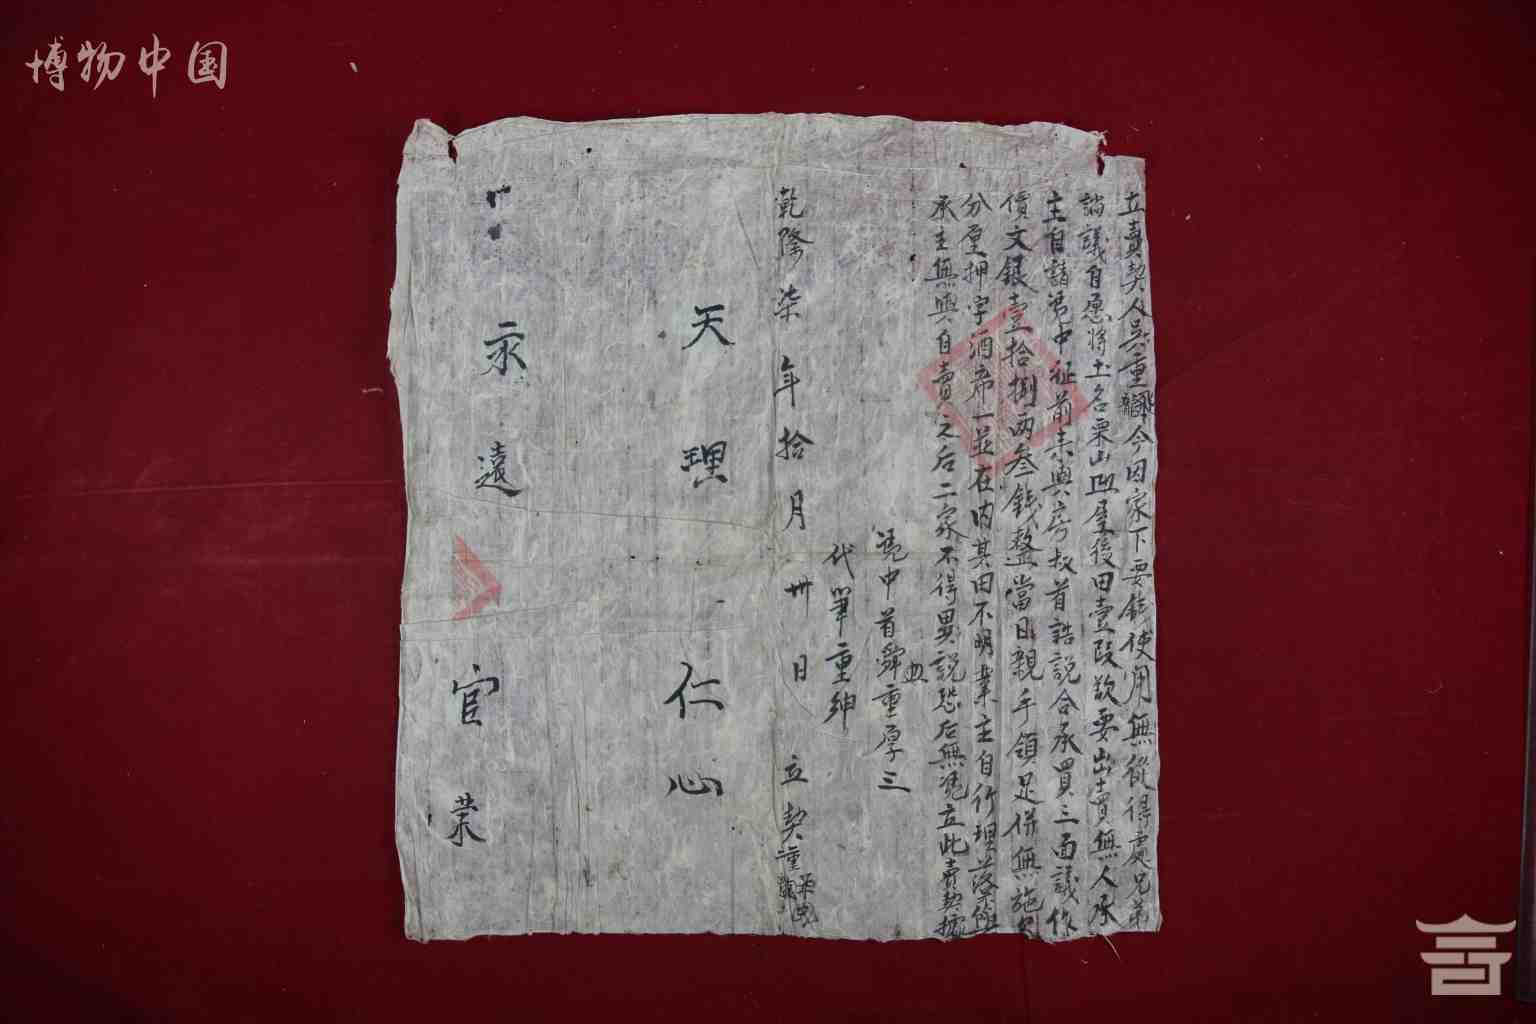 博物中国
立賣契人吳重今因家下要錢使用無從得處兄弟
謪議自愿将土名栗山凹屋後田壹段欲要出賣無人承
主自請凴中在前未與房叔首誥説合承買三面議作
價文銀壹拾捌两叁錢整當日親手領足併無施欠
分厘押字酒席一並在内其田不明業主自行理落與
承主無與自賣之后二家不得異説恐后無凴立此賣契據
凴中首舜重厚三
代筆重紳
乾隆柒年拾月卅日立契重
天理仁心
永遠官業